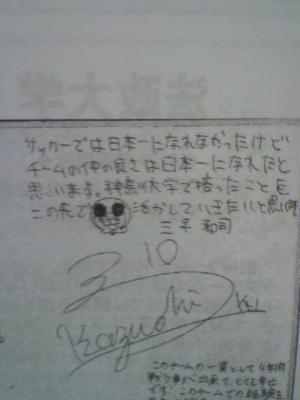 法政大学
サッカーでは日本一になれなかったけど
チームの仲の良さは日本一になれたと
思います。神奈川大学で培ったことを
この先で活かしていきたいと思います
三平 和司
10
Kazushi
このチームの一員として4年間
戦う事が出来て、とても幸せ
です。このチームでの経験を